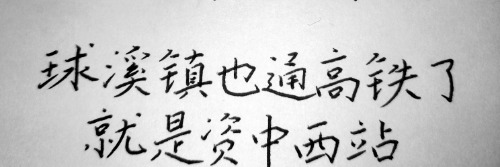 球溪镇也通高铁了
就是资中西站